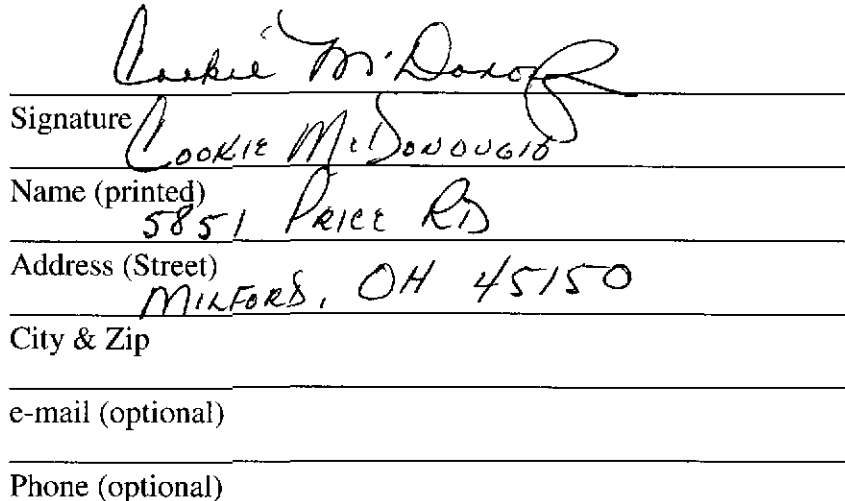 Cookie McDonough
Signature
Cookie McDonough
Name (printed)
5851 Price RD
Address (Street)
Milford, OH 45150
City & Zip
e-mail (optional)
Phone (optional)